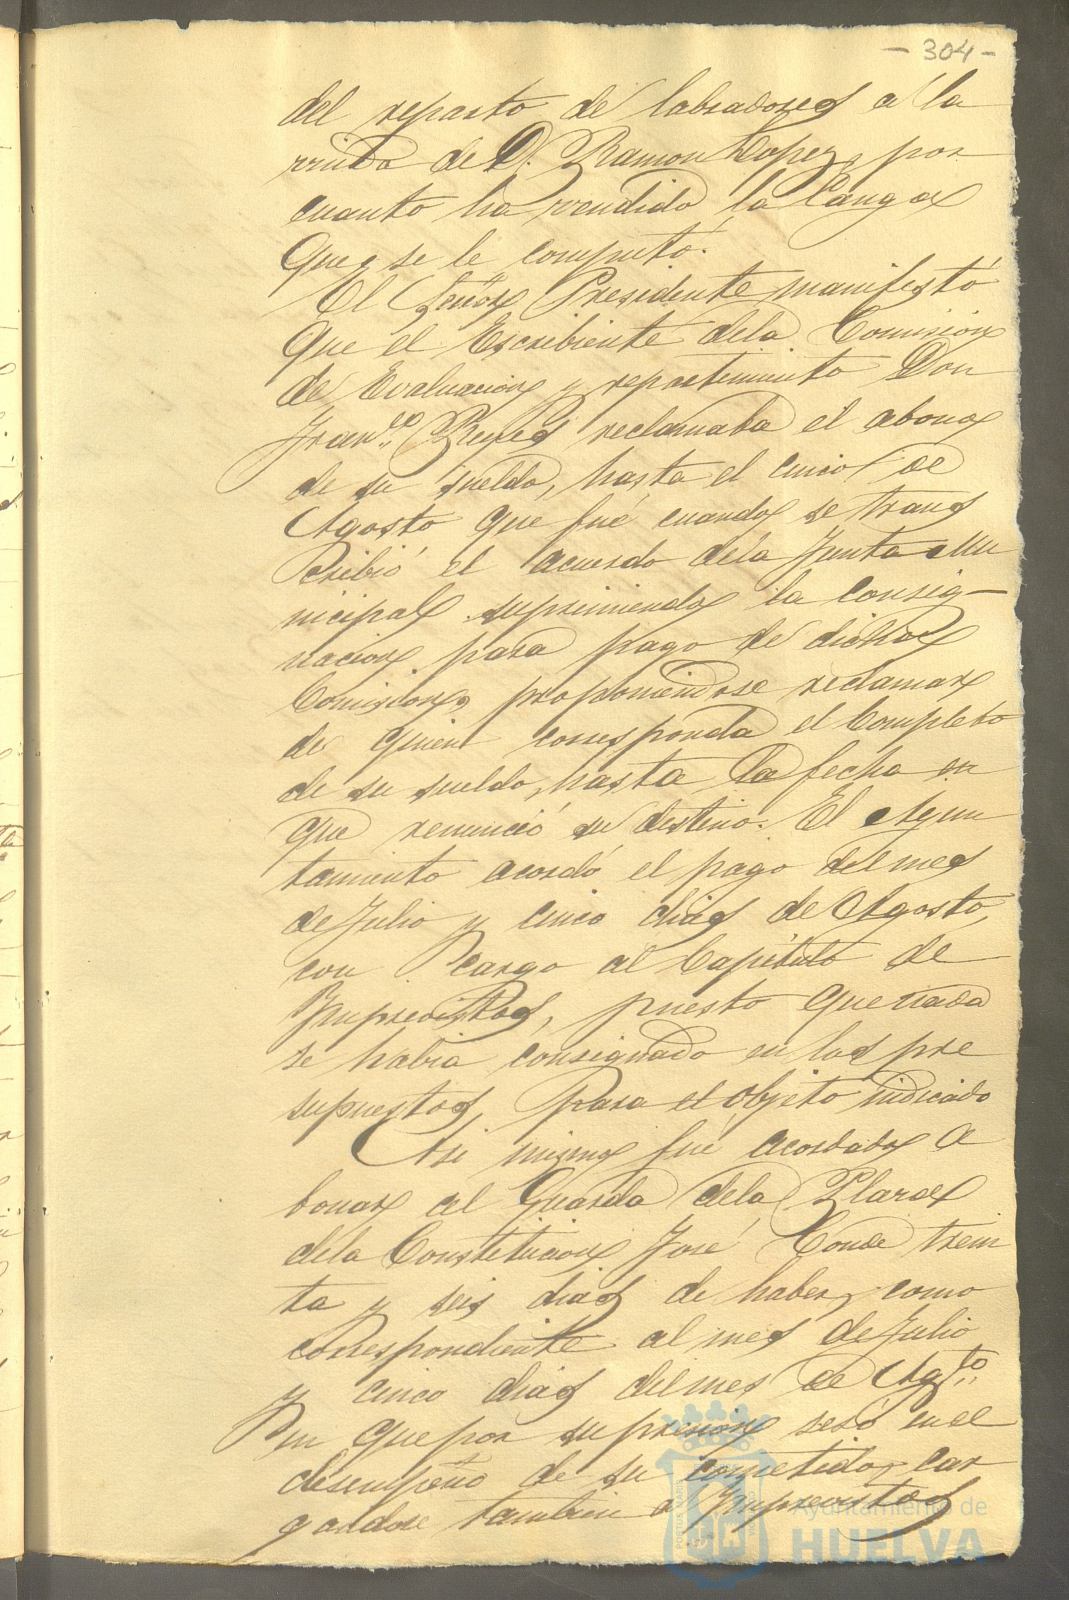 - 304 -
del reparto de labradores a la
viuda de D. Ramon Lopez, por
cuanto ha vendido la Canga
que se le computó.
El Señor Presidente manifestó
que el Escribiente dela Comision
de Evaluacion y repartimiento Don
Fran.co Reyes reclamaba el abono
de su sueldo, hasta el cinco de
Agosto que fué cuando se trans
cribió el acuerdo dela Junta Mu
nicipal suprimiendo la consig-
nacion para pago de dicha
Comision, proponiendose reclamar
de quien corresponda el completo
de su sueldo, hasta la fecha en
que renunció su destino. El Ayun
tamiento acordó el pago del mes
de Julio y cinco dias de Agosto,
con cargo al Capitulo de
Imprevistos, puesto que nada
se habia consignado en los pre
supuestos, para el objeto indicado
Asi mismo fué acordado a
bonar al Guarda dela Plaza
dela Constitucion José Conde trein
ta y seis dias de haber, como
correspondiente al mes de Julio
y cinco dias del mes de Ag.to
en que por supresion sesó en el
desempeño de su cometido, car
gandose tambien a Imprevistos
Ayuntamiento de
HUELVA